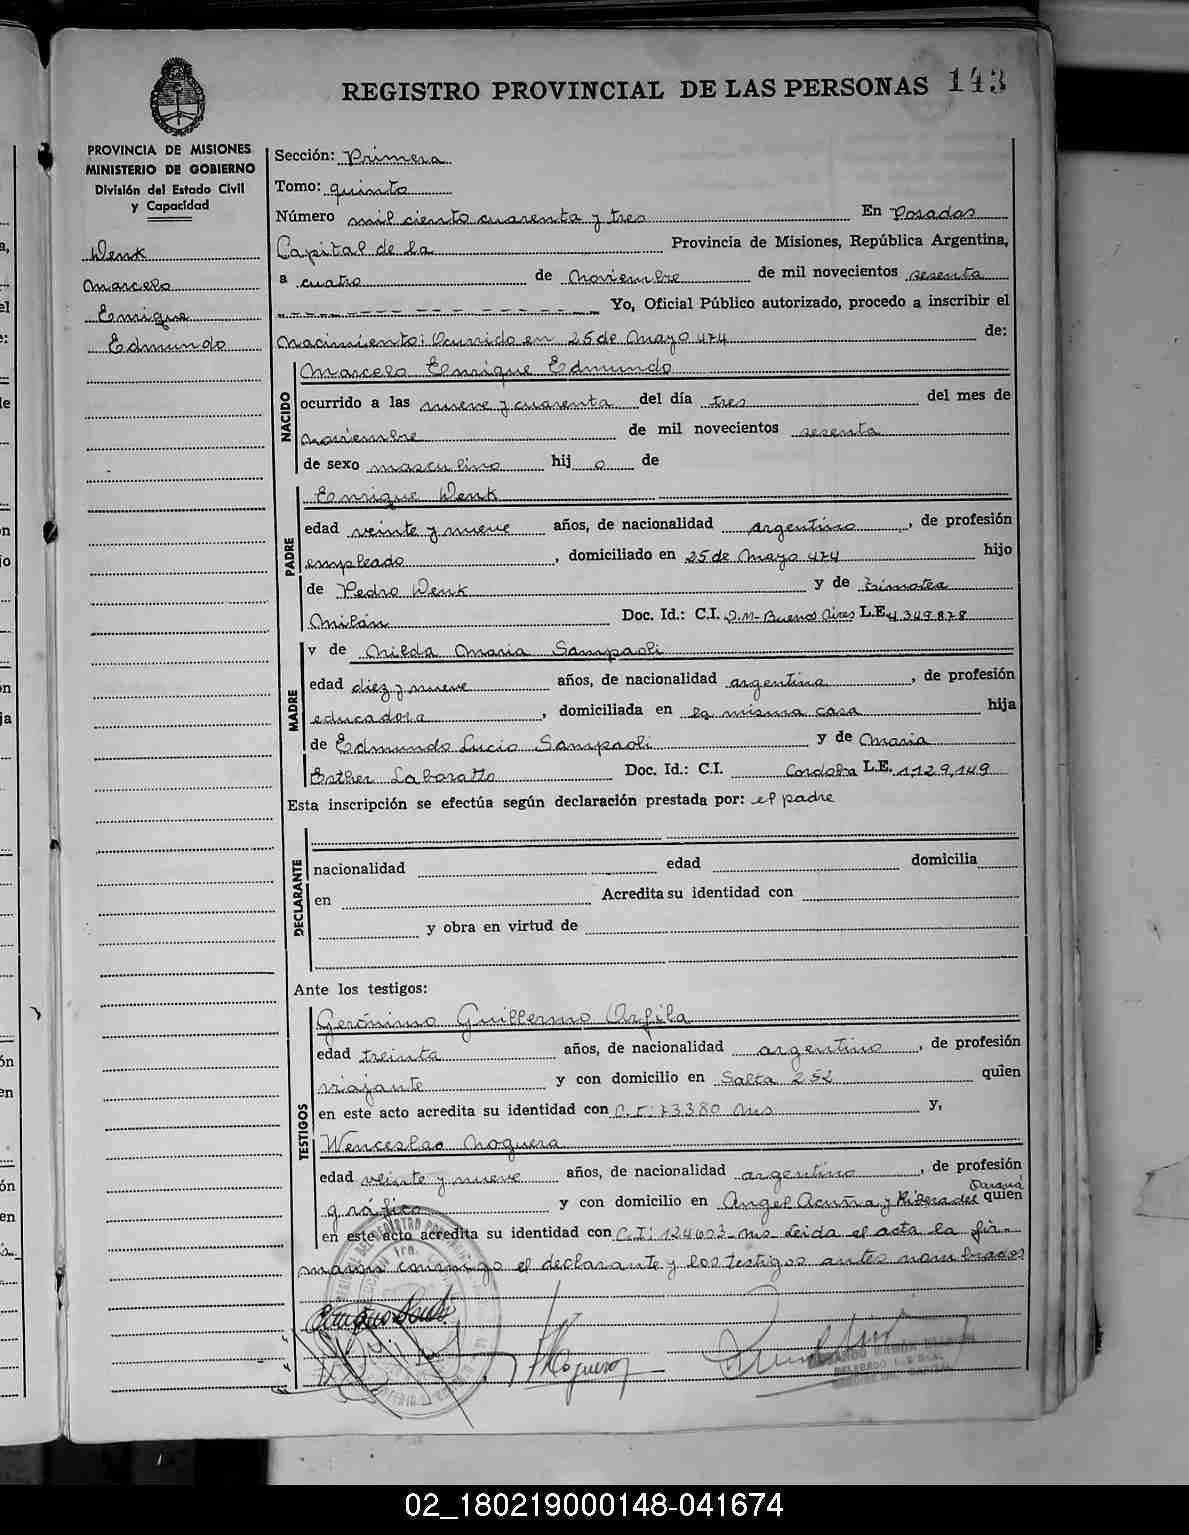 REGISTRO PROVINCIAL DE LAS PERSONAS 143
PROVINCIA DE MISIONES
MINISTERIO DE GOBIERNO
División del Estado Civil
y Capacidad
Wenk
Marcelo
Enrique
Edmundo
Sección: Primera
Tomo: quinto
Número mil ciento cuarenta y tres En Posadas
Capital de la Provincia de Misiones, República Argentina,
a cuatro de Noviembre de mil novecientos sesenta
Yo, Oficial Público autorizado, procedo a inscribir el
Nacimiento: Ocurrido en 25 de Mayo 474 de:
NACIDO
Marcelo Enrique Edmundo
ocurrido a las nueve y cuarenta del día tres del mes de
noviembre de mil novecientos sesenta
de sexo masculino hij o de
PADRE
Enrique Wenk
edad veinte y nueve años, de nacionalidad argentino, de profesión
empleado, domiciliado en 25 de Mayo 474 hijo
de Pedro Wenk y de Timotea
Milán Doc. Id.: C.I. D.M- Buenos Aires L.E. 4.349.878
MADRE
y de Nilda Maria Sampaoli
edad diez y nueve años, de nacionalidad argentina, de profesión
educadora, domiciliada en la misma casa hija
de Edmundo Lucio Sampaoli y de Maria
Esther Laboratto Doc. Id.: C.I. Cordoba L.E. 1,129,149
Esta inscripción se efectúa según declaración prestada por: el padre
DECLARANTE
nacionalidad edad domicilia
en Acredita su identidad con
y obra en virtud de
Ante los testigos:
TESTIGOS
Gerónimo Guillermo Orfila
edad treinta años, de nacionalidad argentino, de profesión
viajante y con domicilio en Salta 252 quien
en este acto acredita su identidad con C.I: 73380 Ms y,
Wenceslao Noguera
edad veinte y nueve años, de nacionalidad argentino, de profesión
Paraná
gráfico y con domicilio en Angel Acuña y Ribera del quien
en este acto acredita su identidad con C.I: 124603-Ms Leida el acta la fir-
maron conmigo el declarante y los testigos antes nombrados
WNoguera
02_180219000148-041674